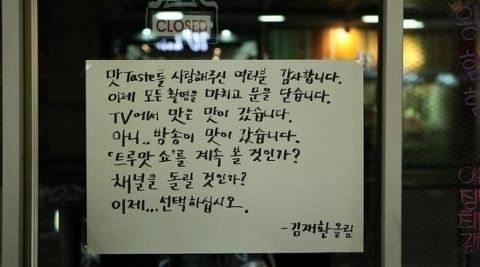 CLOSED
맛Taste를 사랑해주신 여러분 감사합니다.
이제 모든 촬영을 마치고 문을 닫습니다.
TV에서 맛은 맛이 갔습니다.
아니.. 방송이 맛이 갔습니다.
'트루맛 쇼'를 계속 볼 것인가?
채널을 돌릴 것인가?
이제...선택하십시오.
-김재환 올림